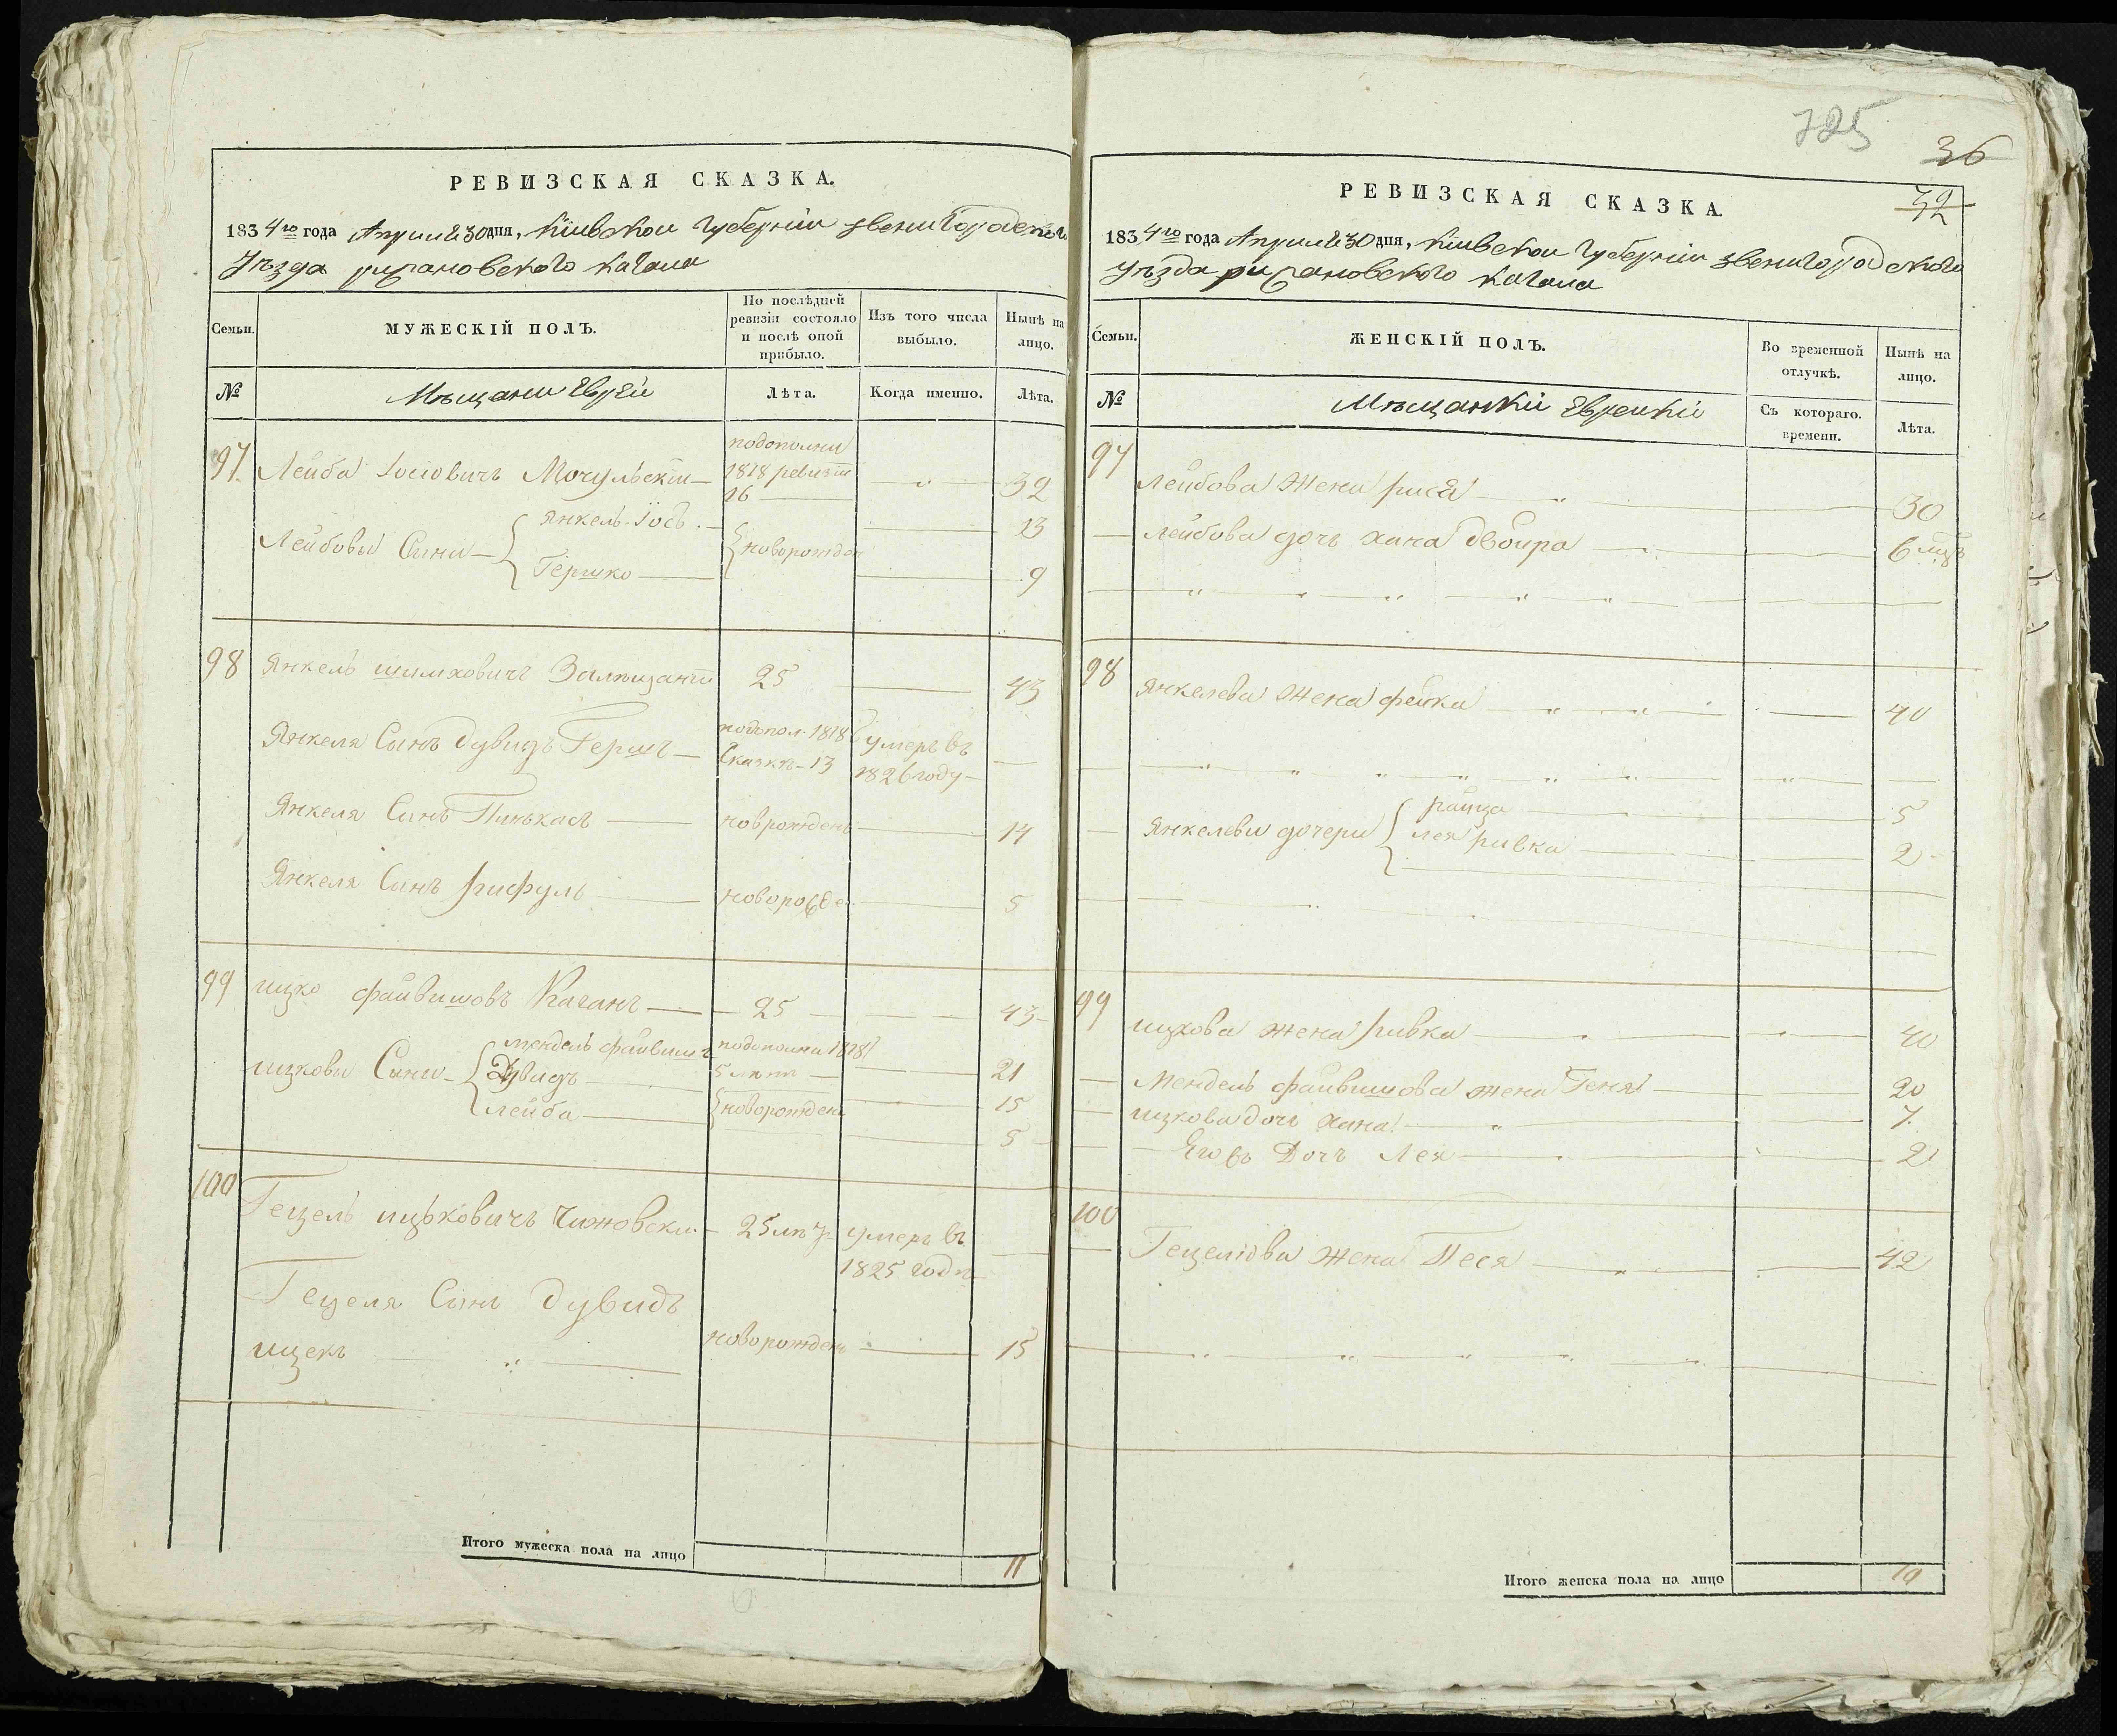 РЕВИЗСКАЯ СКАЗКА.
1834го года Априля 30 дня, Кіевской губерніи звенигородского
Уѣзда рижановского кагала
Семьи.
МУЖЕСКІЙ ПОЛЪ.
По послѣдней ревизіи состояло и послѣ оной прибыло.
Изъ того числа выбыло.
Нынѣ на лицо.
№
Мѣщани Евреи
Лѣта.
Когда именно.
Лѣта.
97 Лейба Іосіовичъ Мочульскіи 1818 ревизіи 16 32
Лейбовы Сини Янкель Іось новорожден 13
Гершко 9
98 Янкель шимховичъ 25 43
Янкеля Синъ дувидъ Гершъ 1818 Сказкѣ 13 умеръ въ 1826 году
Янкеля Синъ Пинькасъ новрожденъ 14
Янкеля Синъ рифуль 5
99 ицко файвишовъ Каганъ 25 43
ицкови Сини мендель файвишъ 1818 5 лѣтъ 21
Дувидъ новорожденъ 15
лейба 5
100 Гецель ицьковичъ Чижовски 25 умеръ въ 1825 годѣ
Гецеля Синъ дувидъ
ицекъ новорожденъ 15
Итого мужеска пола на лицо 11
725
36
32
РЕВИЗСКАЯ СКАЗКА.
1834го года Априля 30 дня, Кіевской губерніи звенигородского
Уѣзда рижановского кагала
Семьи.
ЖЕНСКІЙ ПОЛЪ.
Во временной отлучкѣ.
Нынѣ на лицо.
№
Мѣщанки Еврейки
Съ котораго. времени.
Лѣта.
97 Лейбова жена рися 30
Лейбова дочъ хана двойра 6
98 Янкелева жена фейка 40
Янкелеви дочери райца 5
лея ривка 2
99 ицкова жена ривка 40
Мендель файвишова жена Геня 20
ицкова дочъ хана 7
Егожъ Дочъ Лея 2
100 Гецеліова жена Песя 42
Итого женска пола на лицо 10